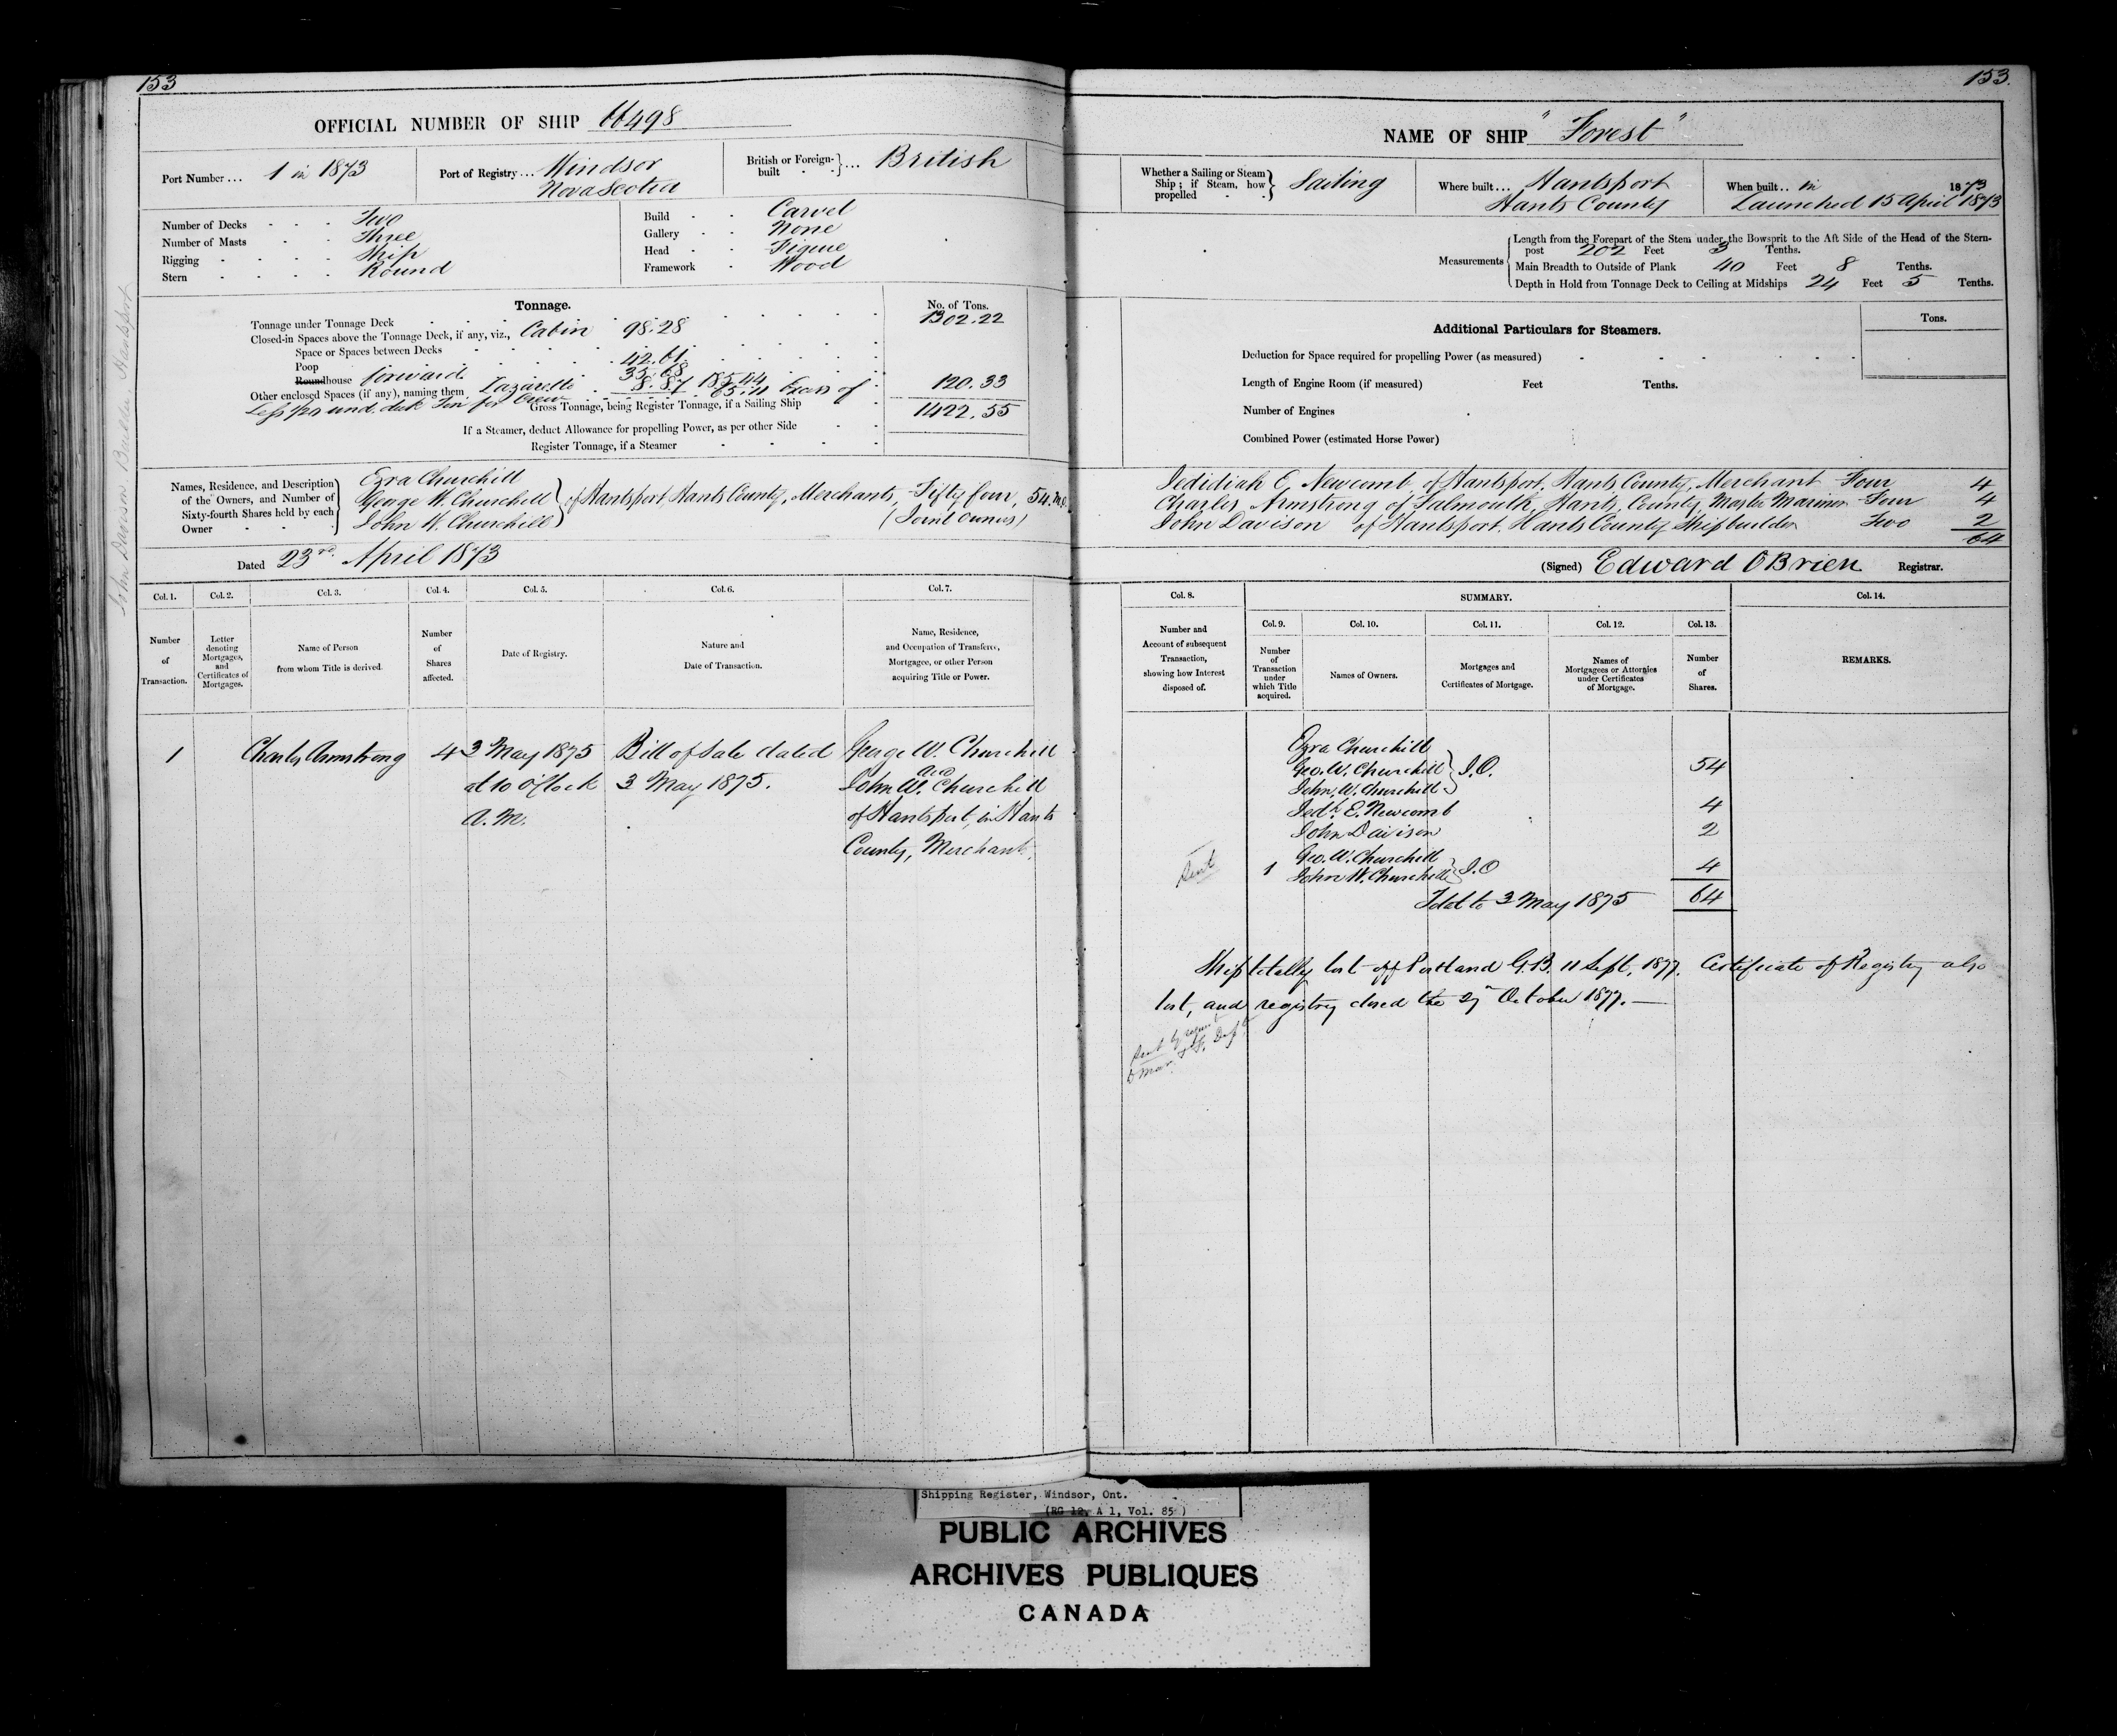 153
OFFICIAL NUMBER OF SHIP 66498
Port Number ... 1 in 1873
Port of Registry ... Windsor
Nova Scotia
British or Foreign-built } ... British
Number of Decks - - - Two
Number of Masts - - Three
Rigging - - - - Ship
Stern - - - - Round
Build - - Carvel
Gallery - - None
Head - - Figure
Framework - Wood
Tonnage.
No. of Tons.
Tonnage under Tonnage Deck 1302.22
Closed-in Spaces above the Tonnage Deck, if any, viz., Cabin 98.28
Space or Spaces between Decks
Poop 42.61
Roundhouse forward 35.68
Other enclosed Spaces (if any), naming them, Lazarette 8.87 185.44 120.33
Less pr und. deck Ten for Crew 65.11 Excess of
Gross Tonnage, being Register Tonnage, if a Sailing Ship 1422.55
If a Steamer, deduct Allowance for propelling Power, as per other Side
Register Tonnage, if a Steamer
Names, Residence, and Description of the Owners, and Number of Sixty-fourth Shares held by each Owner
Ezra Churchill
George W. Churchill } of Hantsport, Hants County, Merchants, Fifty four, 54
John W. Churchill (Joint Owners)
Dated 23rd. April 1873
John Davison Builder Hantsport
Col. 1. Col. 2. Col. 3. Col. 4. Col. 5. Col. 6. Col. 7.
Number of Transaction.
Letter denoting Mortgages, and Certificates of Mortgages.
Name of Person from whom Title is derived.
Number of Shares affected.
Date of Registry.
Nature and Date of Transaction.
Name, Residence, and Occupation of Transferee, Mortgagee, or other Person acquiring Title or Power.
1 Charles Armstrong 4 3 May 1875 Bill of Sale dated George W. Churchill
and
at 10 o'Clock 3 May 1875. John W. Churchill
A.M. of Hantsport, in Hants
County, Merchants.
153.
NAME OF SHIP "Forest"
Whether a Sailing or Steam Ship; if Steam, how propelled } Sailing
Where built ... Hantsport
Hants County
When built .. in 1873
Launched 15 April 1873
Measurements
Length from the Forepart of the Stem under the Bowsprit to the Aft Side of the Head of the Stern-
post 202 Feet 3 Tenths.
Main Breadth to Outside of Plank 40 Feet 8 Tenths.
Depth in Hold from Tonnage Deck to Ceiling at Midships 24 Feet 5 Tenths.
Additional Particulars for Steamers.
Tons.
Deduction for Space required for propelling Power (as measured)
Length of Engine Room (if measured) Feet Tenths.
Number of Engines
Combined Power (estimated Horse Power)
Jedidiah E. Newcomb, of Hantsport, Hants County, Merchant Four 4
Charles Armstrong of Falmouth, Hants County, Master Mariner Four 4
John Davison of Hantsport, Hants County Shipbuilder Two 2
64
(Signed) Edward O'Brien Registrar.
Col. 8. SUMMARY. Col. 14.
Number and Account of subsequent Transaction, showing how Interest disposed of.
Col. 9. Col. 10. Col. 11. Col. 12. Col. 13.
Number of Transaction under which Title acquired.
Names of Owners.
Mortgages and Certificates of Mortgage.
Names of Mortgagees or Attornies under Certificates of Mortgage.
Number of Shares.
REMARKS.
Ezra Churchill
Geo. W. Churchill } J.O. 54
John W. Churchill
Jedh. E. Newcomb 4
John Davison 2
Geo. W. Churchill
Sent 1 John W. Churchill } J.O 4
Total to 3 May 1875 64
Ship totally lost off Portland G.B. 11 Sept, 1877. Certificate of Registry also
lost, and registry closed the 27th October 1877.
Shipping Register, Windsor, Ont.
(RG 12, A 1, Vol. 85)
PUBLIC ARCHIVES
ARCHIVES PUBLIQUES
CANADA